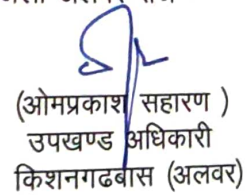 (ओमप्रकाश सहारण )
उपखण्ड अधिकारी
किशनगढबास (अलवर)